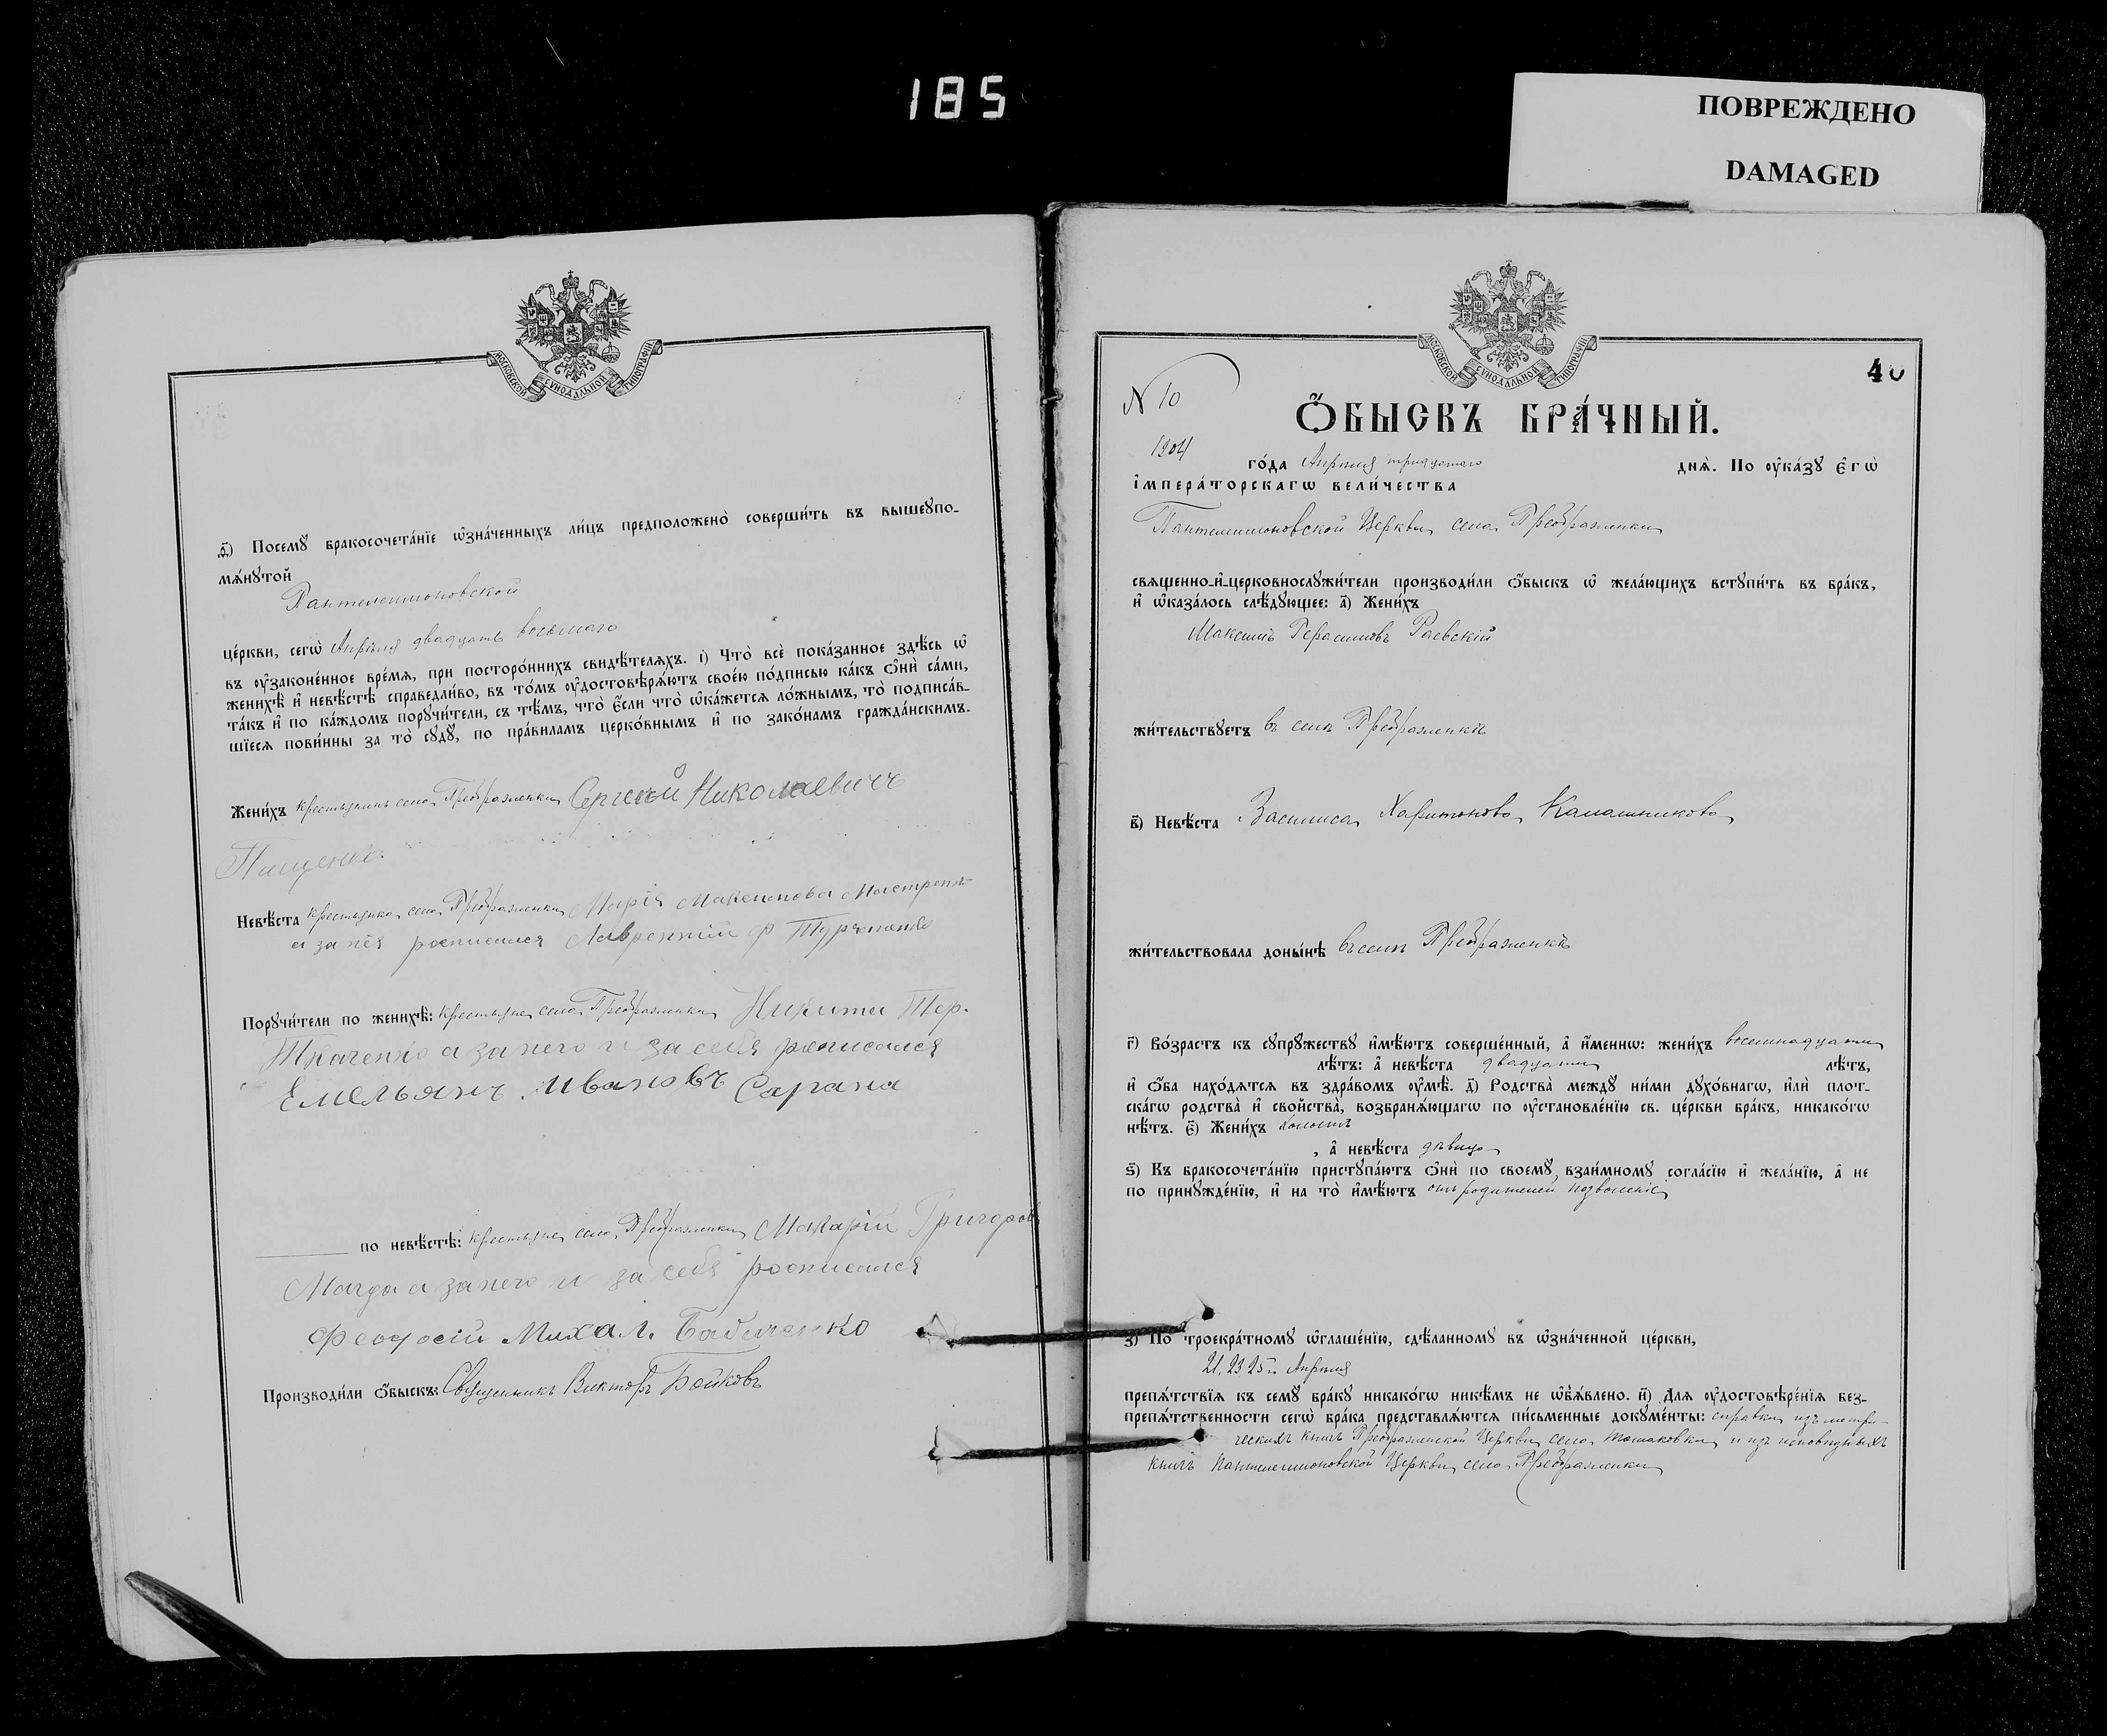 185
ПОВРЕЖДЕНО
DAMAGED
МОСКОВСКОЙ СѴНОДАЛЬНОЙ ТИПОГРАФІИ
ѳ҃) Посемꙋ бракосочета́нїе ѡ҆зна́ченныхъ ли́цъ предположено̀ соверши́ть въ вышеꙋпо-
мѧ́нꙋтой
Пантелеимоновской
це́ркви, сегѡ̀ Апрѣля двадцать восьмаго
въ ᲂу҆законе́нное вре́мѧ, при посторо́ннихъ свидѣ́телѧхъ. і) Что̀ всѐ пока́занное здѣ́сь ѡ҆
женихѣ̀ и҆ невѣ́стѣ справедли́во, въ то́мъ ᲂу҆достовѣрѧ́ютъ свое́ю по́дписью ка́къ ѻ҆нѝ са́ми,
та́къ и҆ по ка́ждомъ порꙋчи́тели, съ тѣ́мъ, что̀ є҆́сли что̀ ѡ҆ка́жетсѧ ло́жнымъ, то̀ подписа́в-
шїесѧ пови́нны за то̀ сꙋдꙋ̀, по пра́виламъ церко́внымъ и҆ по зако́намъ гражда́нскимъ.
Жени́хъ крестьянинъ села Преображенки Сергѣй Николаевичъ
Пащенко.
Невѣ́ста крестьянка села Преображенки Марія Максимова
а за нея росписался Лаврентий Ф
Порꙋчи́тели по женихѣ̀: крестьяне села Преображенки Никита Тер.
Ткаченко а за него и за себя росписался
Емельянъ Ивановъ Сагана
по невѣ́стѣ: крестьяне села Преображенки Макарій Григоров
Магда а за него и за себя росписался
Феодосій Михал. Бабиченко
Производи́ли ѻ҆́быскъ: Священникъ Викторъ Бойковъ
МОСКОВСКОЙ СѴНОДАЛЬНОЙ ТИПОГРАФІИ
40
N 10
Ѻ҆́БЫСКЪ БРА́ЧНЫЙ.
1904 го́да Апрѣля тридцатаго днѧ̀. По ᲂу҆ка́зꙋ є҆гѡ̀
і҆мпера́торскагѡ вели́чества
Пантелеимоновской Церкви села Преображенки
священно-и҆-церковнослꙋжи́тели производи́ли ѻ҆́быскъ ѡ҆ жела́ющихъ встꙋпи́ть въ бра́къ,
и҆ ѡ҆каза́лось слѣ́дꙋющее: а҃) Жени́хъ
Максимъ Герасимовъ Раевскій
жи́тельствꙋетъ въ селѣ Преображенкѣ
в҃) Невѣ́ста Василиса Харитонова Калашникова
жи́тельствовала доны́нѣ въ селѣ Преображенкѣ
г҃) Во́зрастъ къ сꙋпрꙋ́жествꙋ и҆мѣ́ютъ соверше́нный, а҆ и҆́менно: жени́хъ восемнадцати
лѣ́тъ: а҆ невѣ́ста двадцати лѣ́тъ,
и҆ ѻ҆́ба нахо́дѧтсѧ въ здра́вомъ ᲂу҆мѣ̀. д҃) Родства̀ междꙋ̀ ни́ми дꙋхо́внагѡ, и҆лѝ плот-
ска́гѡ родства̀ и҆ свойства̀, возбранѧ́ющагѡ по ᲂу҆становле́нїю св. це́ркви бра́къ, никако́гѡ
нѣ́тъ. є҃) Жени́хъ холостъ
, а҆ невѣ́ста дѣвица
ѕ҃) Къ бракосочета́нїю пристꙋпа́ютъ ѻ҆нѝ по своемꙋ̀ взаи́мномꙋ согла́сїю и҆ жела́нїю, а҆ не
по принꙋжде́нїю, и҆ на то̀ и҆мѣ́ютъ отъ родителей позволеніе
з҃) По троекра́тномꙋ ѡ҆глаше́нїю, сдѣ́ланномꙋ въ ѡ҆зна́ченной це́ркви,
21, 23, 25го Апрѣля
препѧ́тствїѧ къ семꙋ̀ бра́кꙋ никако́гѡ никѣ́мъ не ѡ҆бъѧ́влено. и҃) Длѧ ᲂу҆достовѣре́нїѧ без-
препѧ́тственности сегѡ̀ бра́ка представлѧ́ютсѧ пи́сьменные докꙋме́нты: справка изъ метри-
ческихъ книгъ Преображенской Церкви села Томаковки и изъ исповѣдныхъ
книгъ Пантелеимоновской Церкви села Преображенки